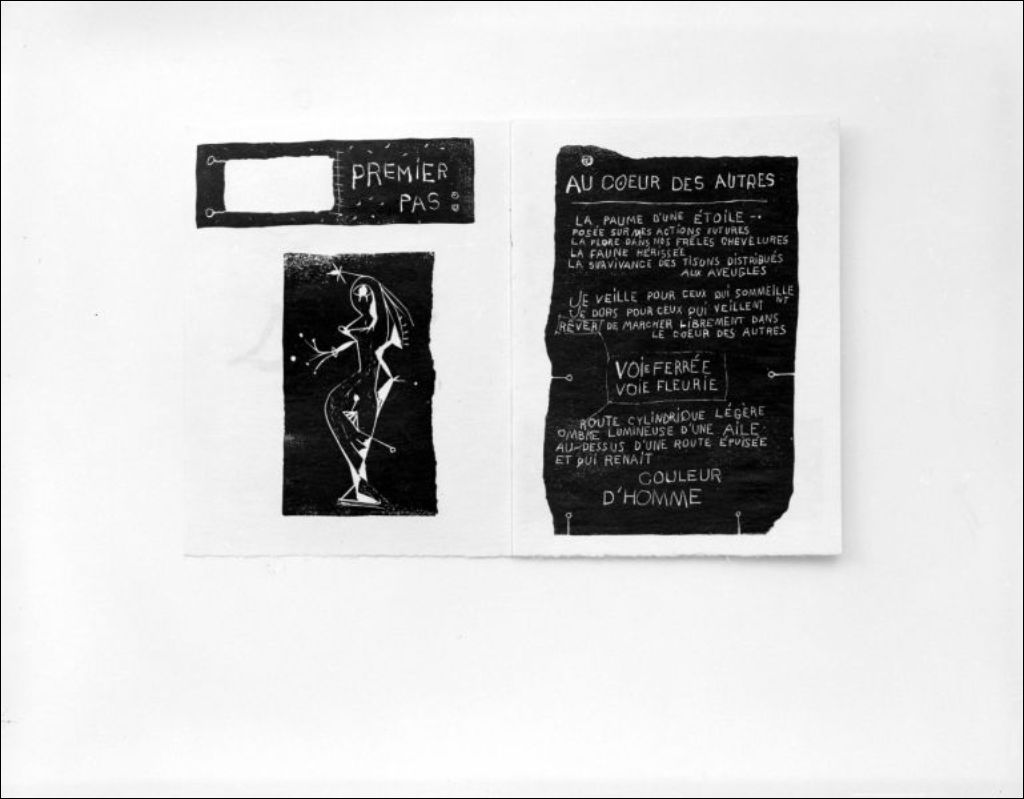 PREMIER
PAS:
AU COEUR DES AUTRES
LA PAUME D'UNE ÉTOILE
POSÉE SUR MES ACTIONS FUTURES
LA FLORE DANS NOS FRÊLES CHEVELURES
LA FAUNE HÉRISSÉE
LA SURVIVANCE DES TISONS DISTRIBUÉS
AUX AVEUGLES
JE VEILLE POUR CEUX QUI SOMMEILLENT
JE DORS POUR CEUX QUI VEILLENT
RÊVER DE MARCHER LIBREMENT DANS
LE COEUR DES AUTRES
VOIE FERRÉE
VOIE FLEURIE
ROUTE CYLINDRIQUE LÉGÈRE
OMBRE LUMINEUSE D'UNE AILE
AU-DESSUS D'UNE ROUTE ÉPUISÉE
ET QUI RENAIT
COULEUR
D'HOMME